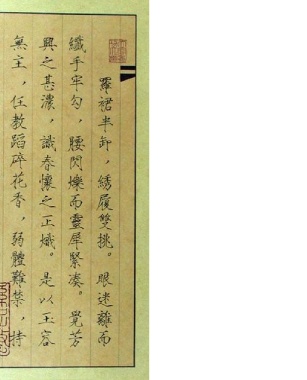 羅裙半卸，繡履雙挑。眼迷離而
纖手牢勾，腰閃爍而靈犀緊湊。覺芳
興之甚濃，識春懷之正熾。是以玉容
無主，任教蹈碎花香，弱體難禁，持